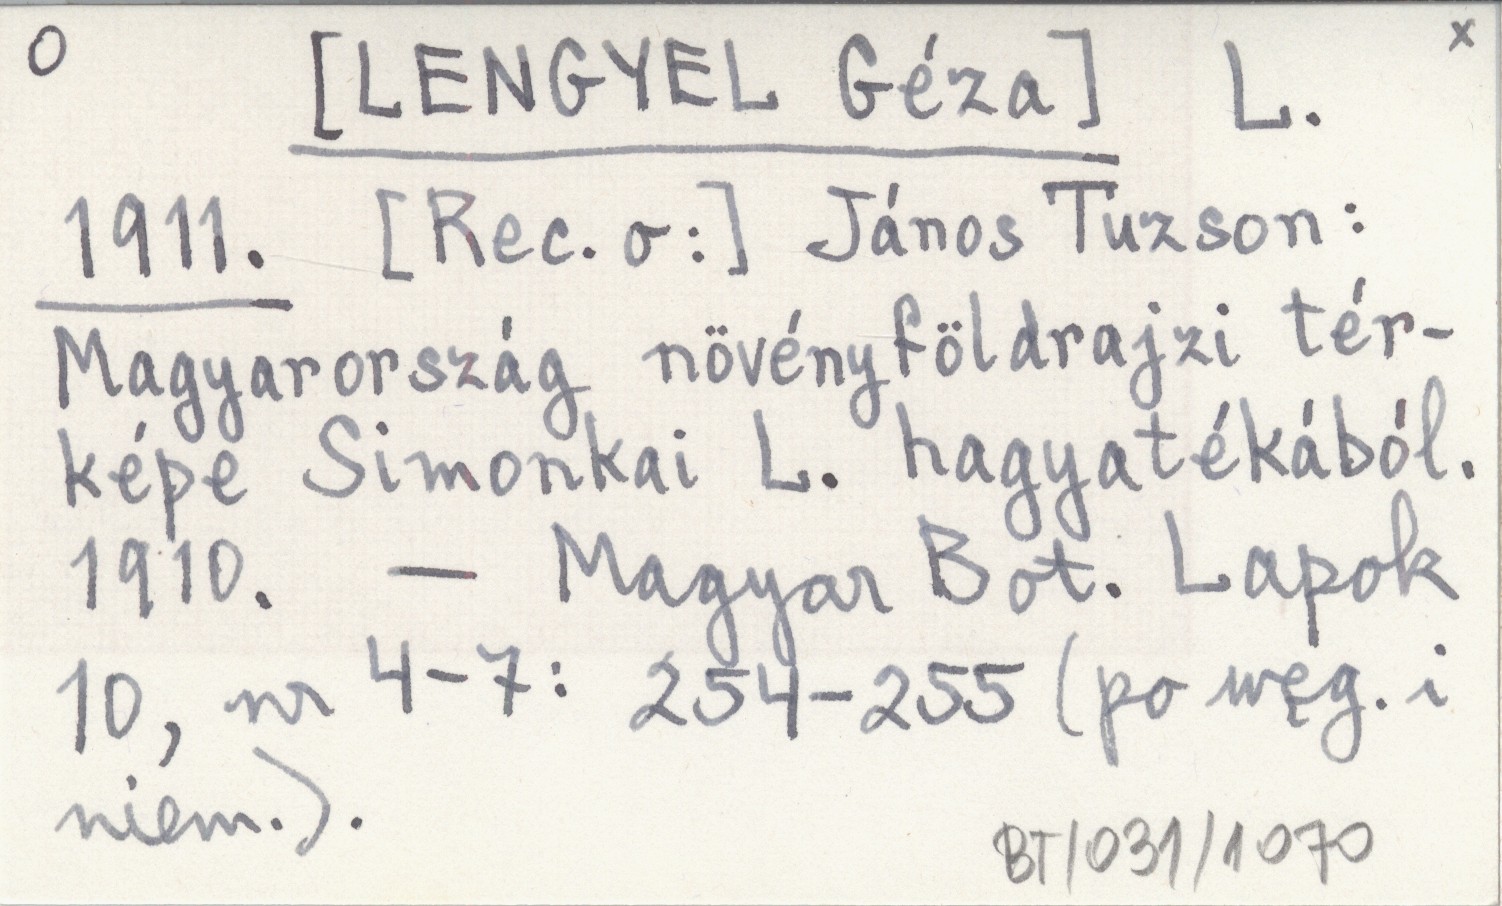 O [LENGYEL Géza] L. x
1911. [Rec. o:] János Tuzson:
Magyarország növényföldrajzi tér-
képe Simonkai L. hagyatékából.
1910. — Magyar Bot. Lapok
10, nr 4-7: 254-255 (po węg. i
niem.).
BT/031/1070